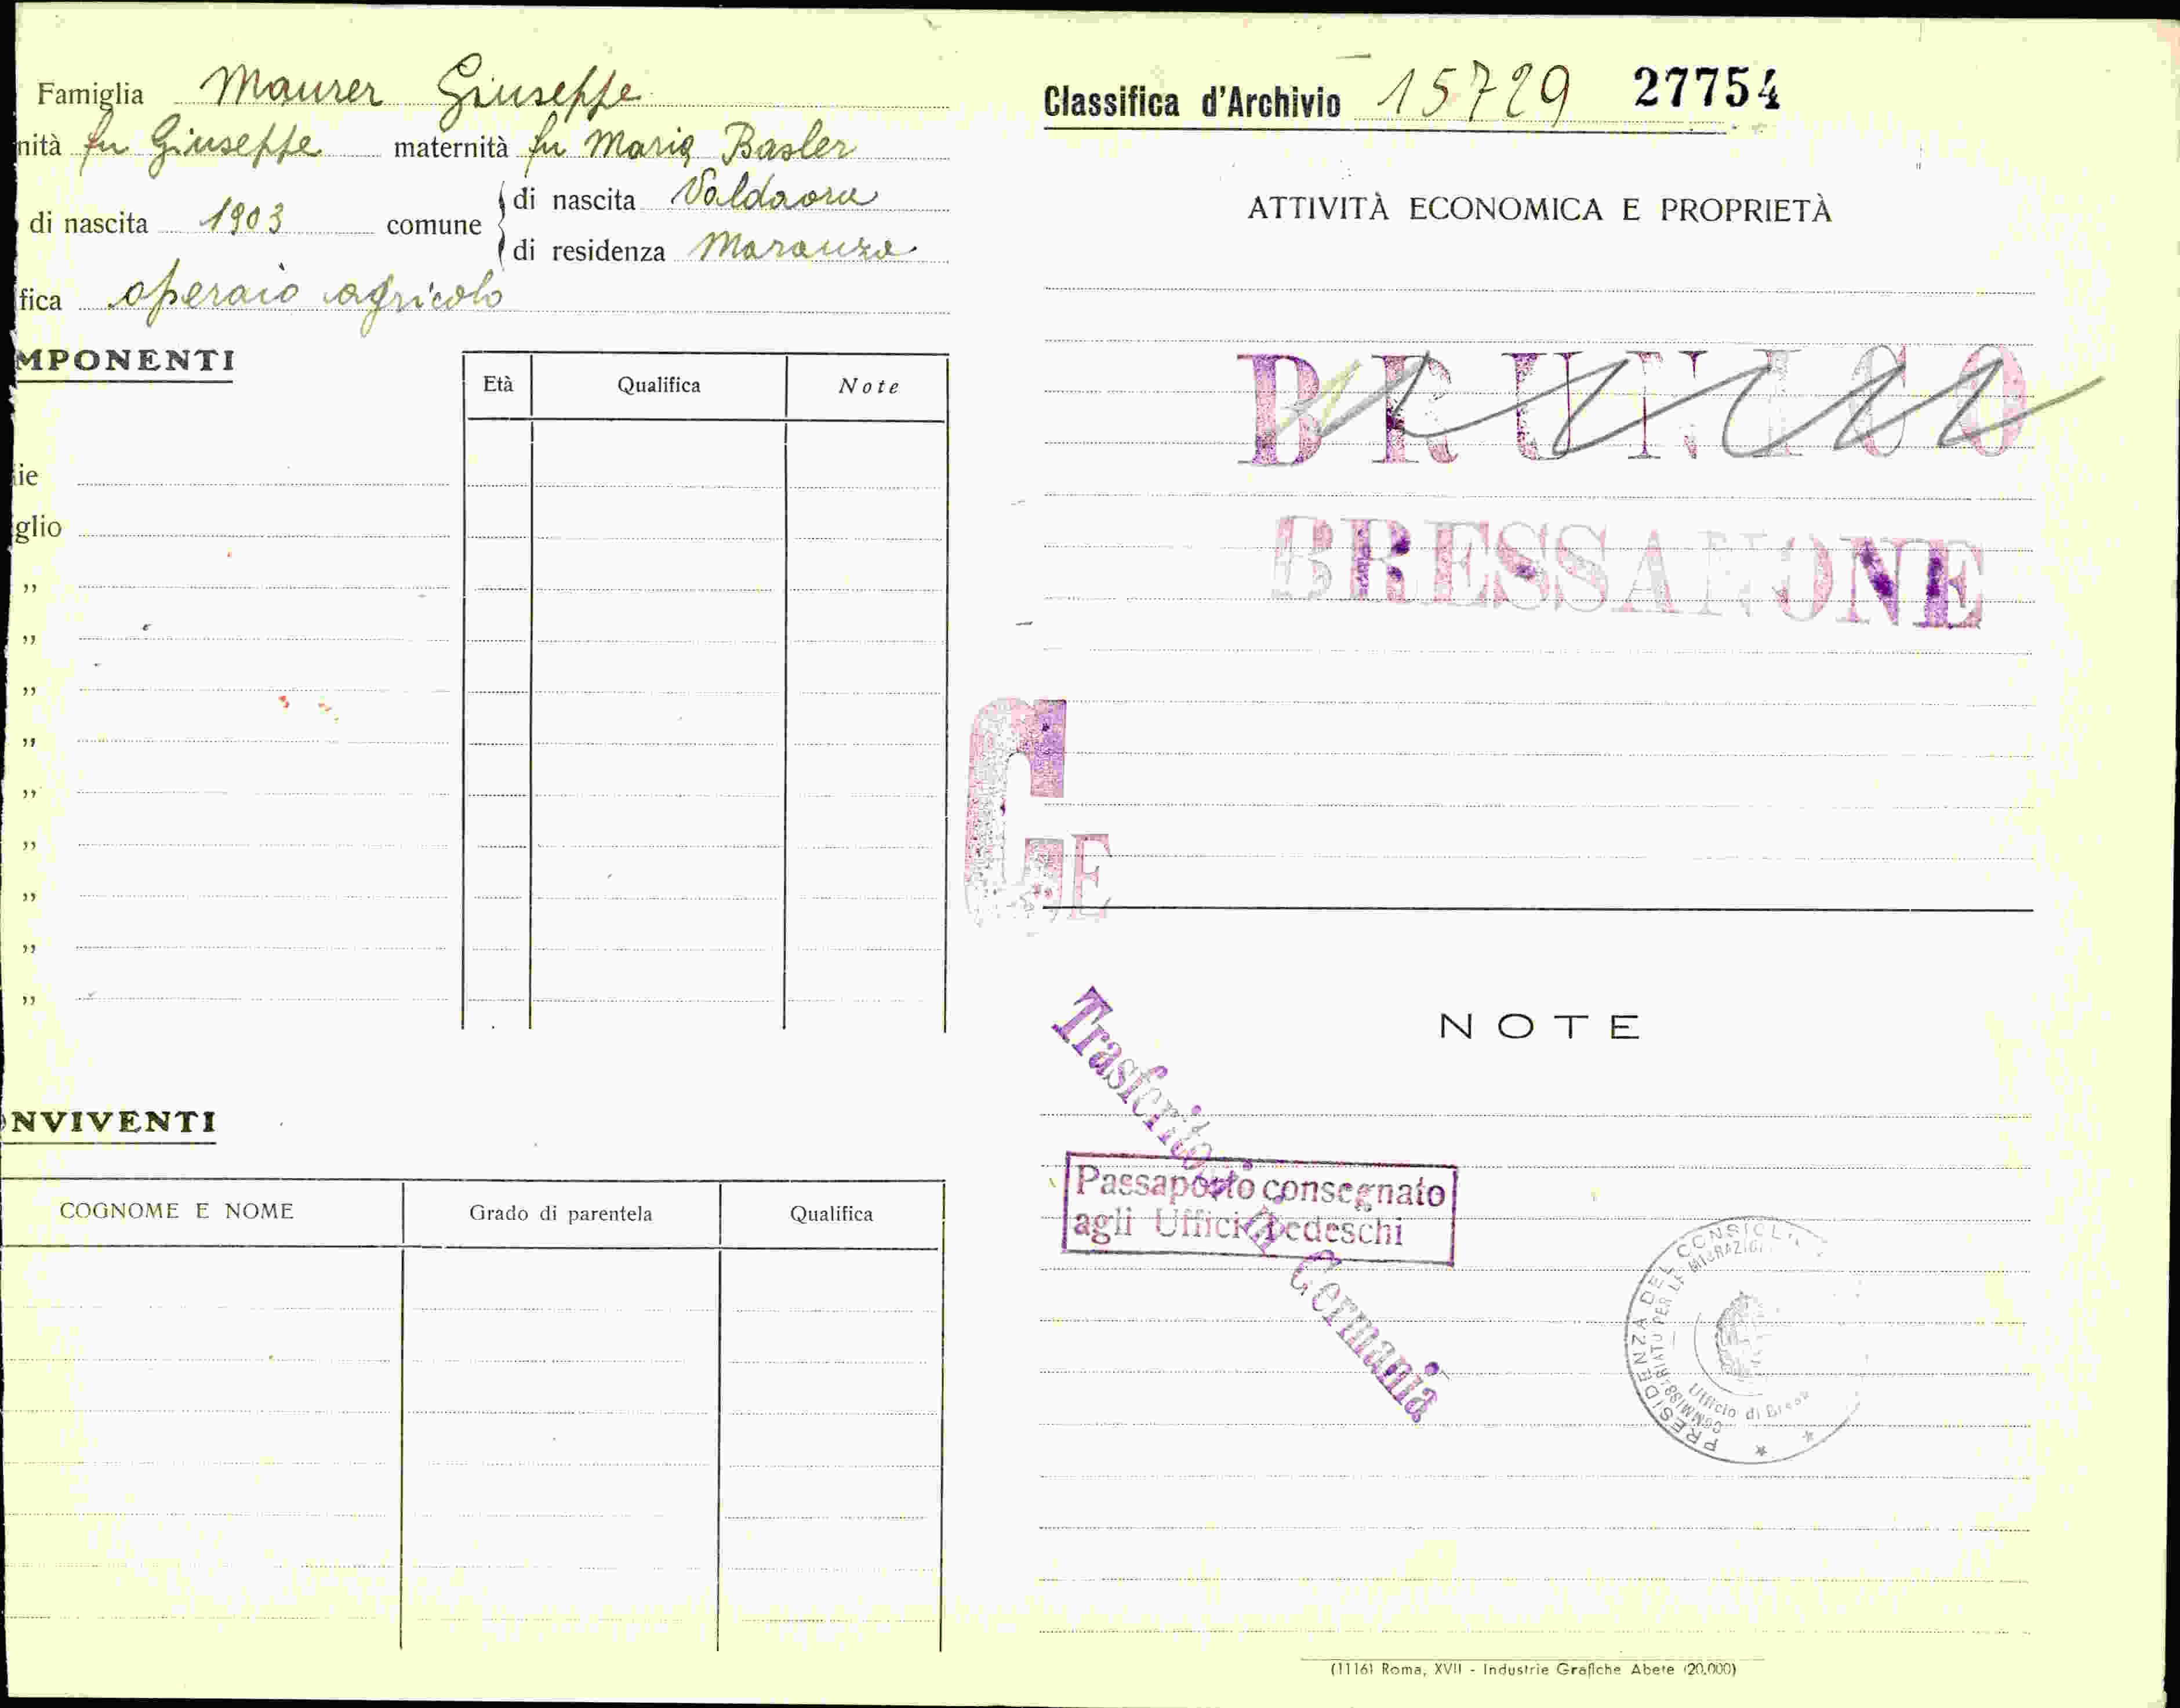 Famiglia Maurer Giuseppe
nità fu Giuseppe maternità fu Maria Basler
di nascita 1903 comune di nascita Valdaora
di residenza Maranza
fica operaio agricolo
MPONENTI
Età Qualifica Note
lie
glio
„
„
„
„
„
„
„
„
„
NVIVENTI
COGNOME E NOME Grado di parentela Qualifica
Classifica d'Archivio 15729 27754
ATTIVITÀ ECONOMICA E PROPRIETÀ
BRUNICO
BRESSANONE
G
E
NOTE
Trasferito in Germania
Passaporto consegnato
agli Uffici Tedeschi
PRESIDENZA DEL CONSIGLI
COMMISSARIATO PER LE MIGRAZIO
Ufficio di Bress
(1116) Roma, XVII - Industrie Grafiche Abete (20.000)